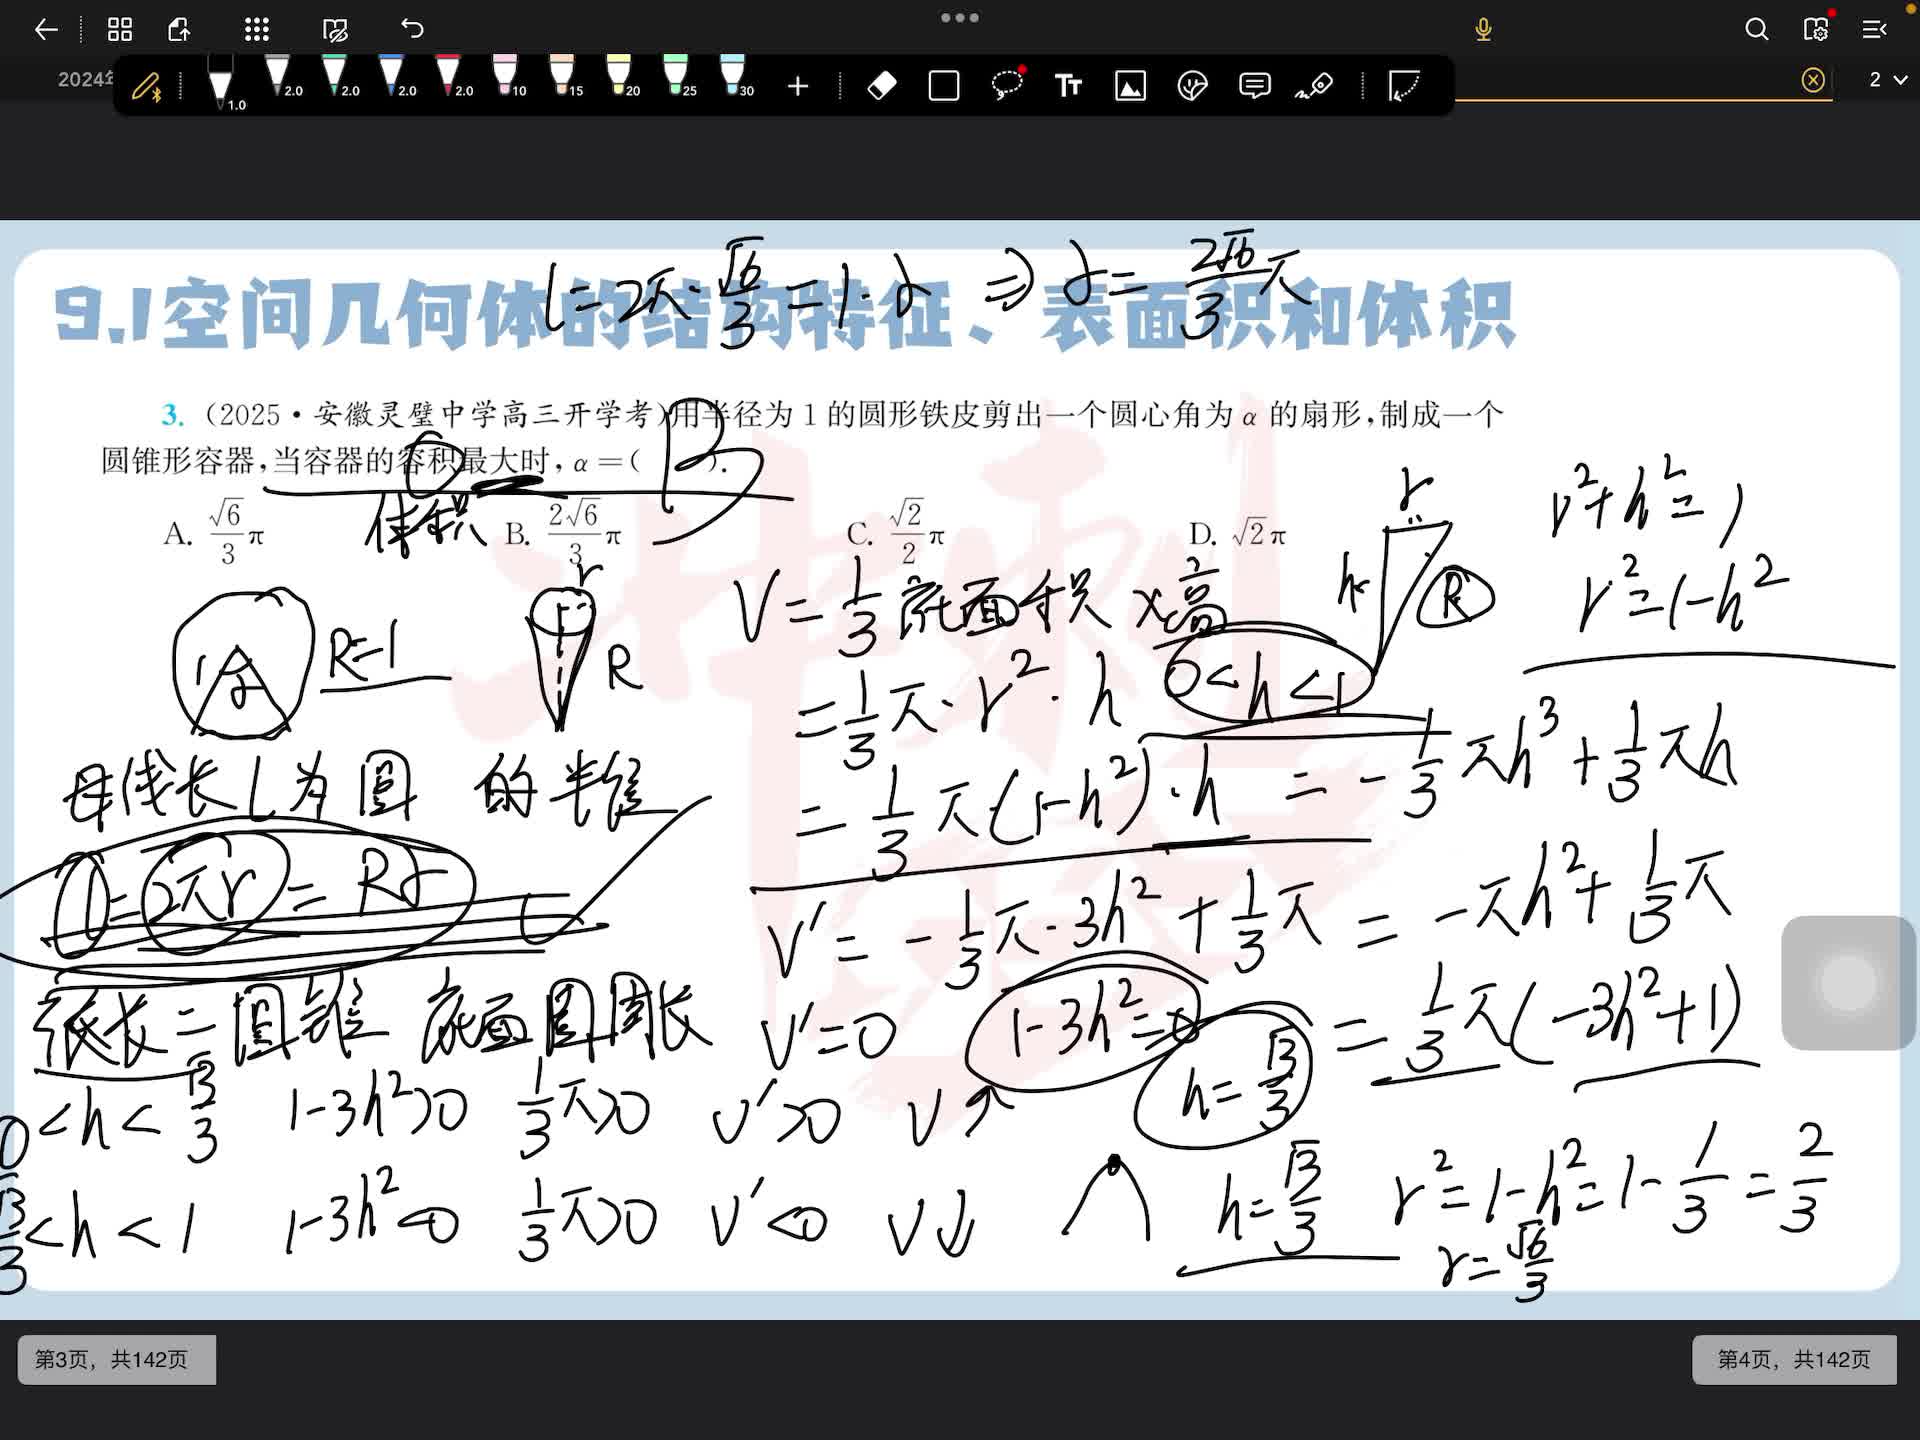 2024年
1.0 2.0 2.0 2.0 2.0 10 15 20 25 30 Tт 2
l=2π·√6/3=1·α ⇒ α=2√6/3π
9.1空间几何体的结构特征、表面积和体积
3.（2025·安徽灵璧中学高三开学考）用半径为1的圆形铁皮剪出一个圆心角为α的扇形,制成一个
圆锥形容器,当容器的容积最大时,α=( B ).
体积
A. √6/3 π B. 2√6/3 π C. √2/2 π D. √2π
r
h R
r²+h²=1
r²=1-h²
1 α R=1
r R
V=1/3底面积×高
0<h<1
=1/3π·r²·h
=1/3π(1-h²)·h=-1/3πh³+1/3πh
母线长l为圆 的半径
l=2πr=Rα
l
V'=-1/3π·3h²+1/3π=-πh²+1/3π
=1/3π(-3h²+1)
弧长=圆锥 底面圆周长
V'=0 1-3h²=0
h=√3/3
0<h<√3/3 1-3h²>0 1/3π>0 V'>0 V↗
√3/3<h<1 1-3h²<0 1/3π>0 V'<0 V↓
h=√3/3 r²=1-h²=1-1/3=2/3
r=√6/3
第3页，共142页
第4页，共142页